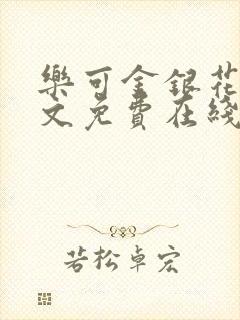 樂可金銀花
文免費在綫
若松卓宏